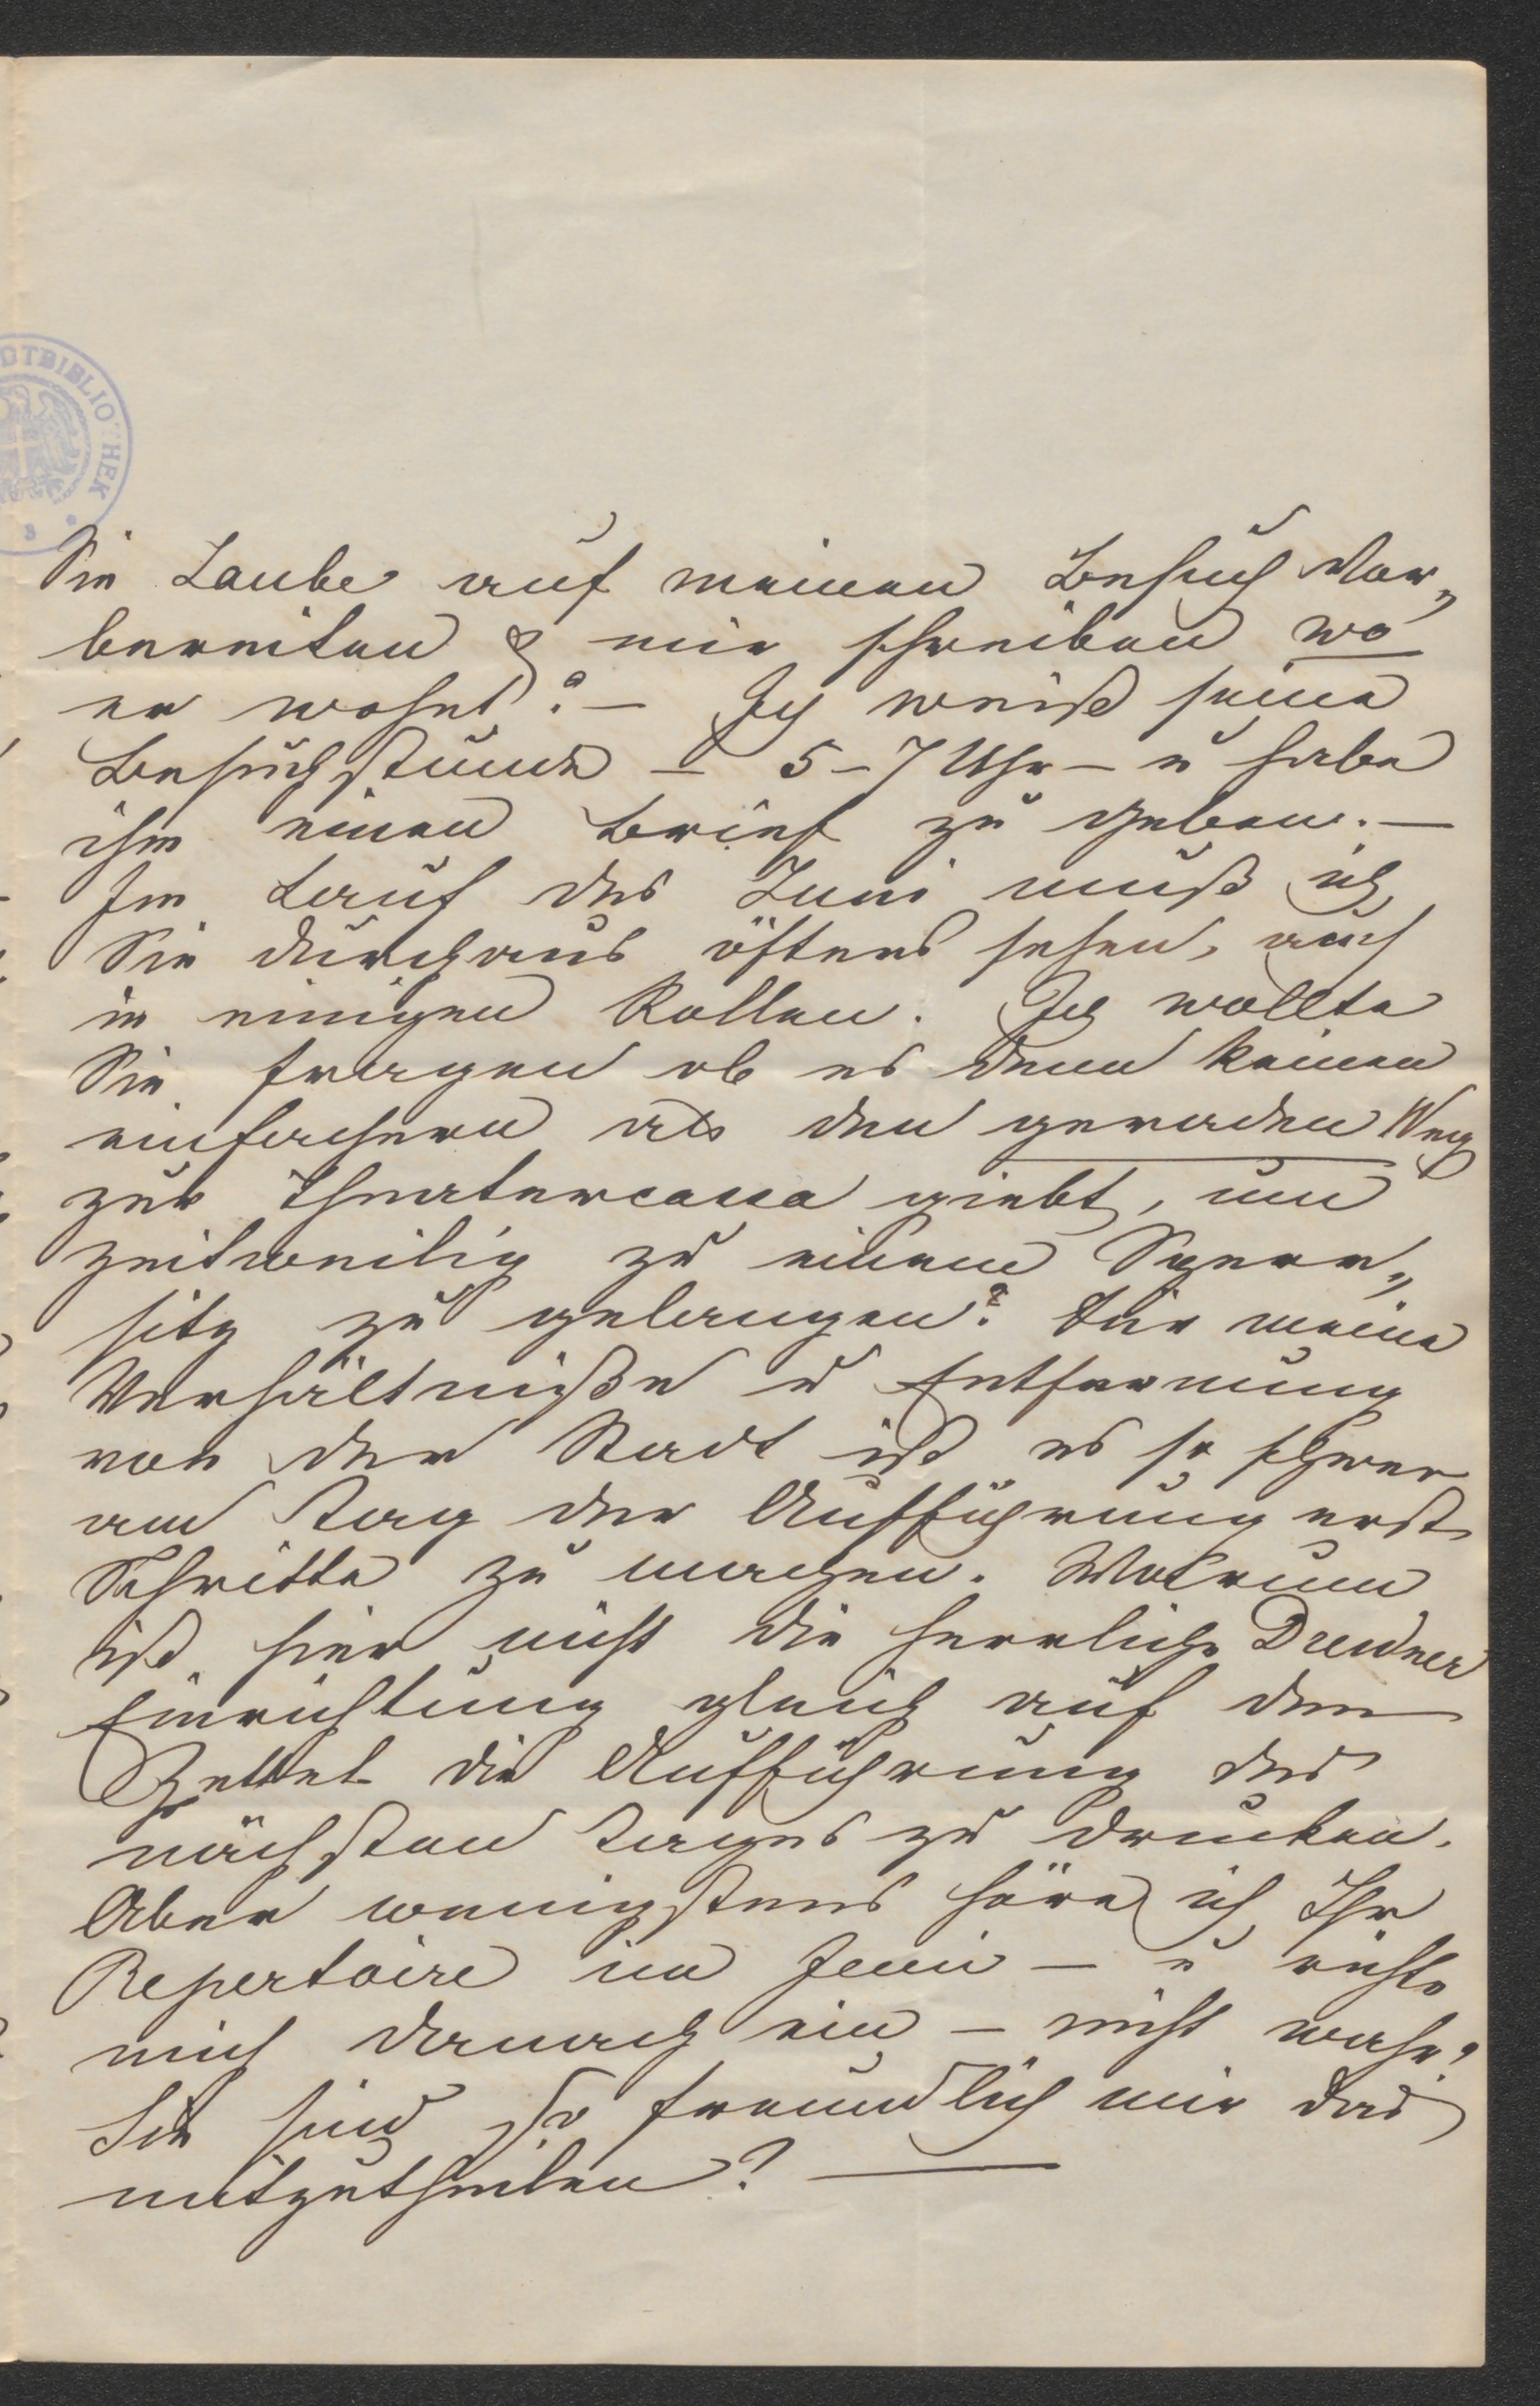 DTBIBLIOTHEK
Sie Laube auf meinen Besuch vor„
bereiten & mir schreiben wo
er wohnt? – Ich weiß seine
Besuchstunde – 5–7 Uhr – u habe
ihm einen Brief zu geben. –
Im Lauf des Juni muß ich
Sie durchaus öfters sehen, auch
in einigen Rollen. Ich wollte
Sie fragen ob es denn keinen
einfachern als den geraden Weg
zur Theatercassa giebt, um
zeitweilig zu einem Sperr„
sitz zu gelangen? Für meine
Verhältniße u Entfernung
von der Stadt ist es so schwer
am Tag der Aufführung erst
Schritte zu machen. Warum
ist hier nicht die herrliche Dresdner
Einrichtung gleich auf dem
Zettel die Aufführung des
nächsten Tages zu drucken.
Aber wenigstens höre ich Ihr
Repertoire im Juni – u richte
mich darnach ein – nicht wahr?
Sie sind so freundlich mir das
mitzutheilen? —